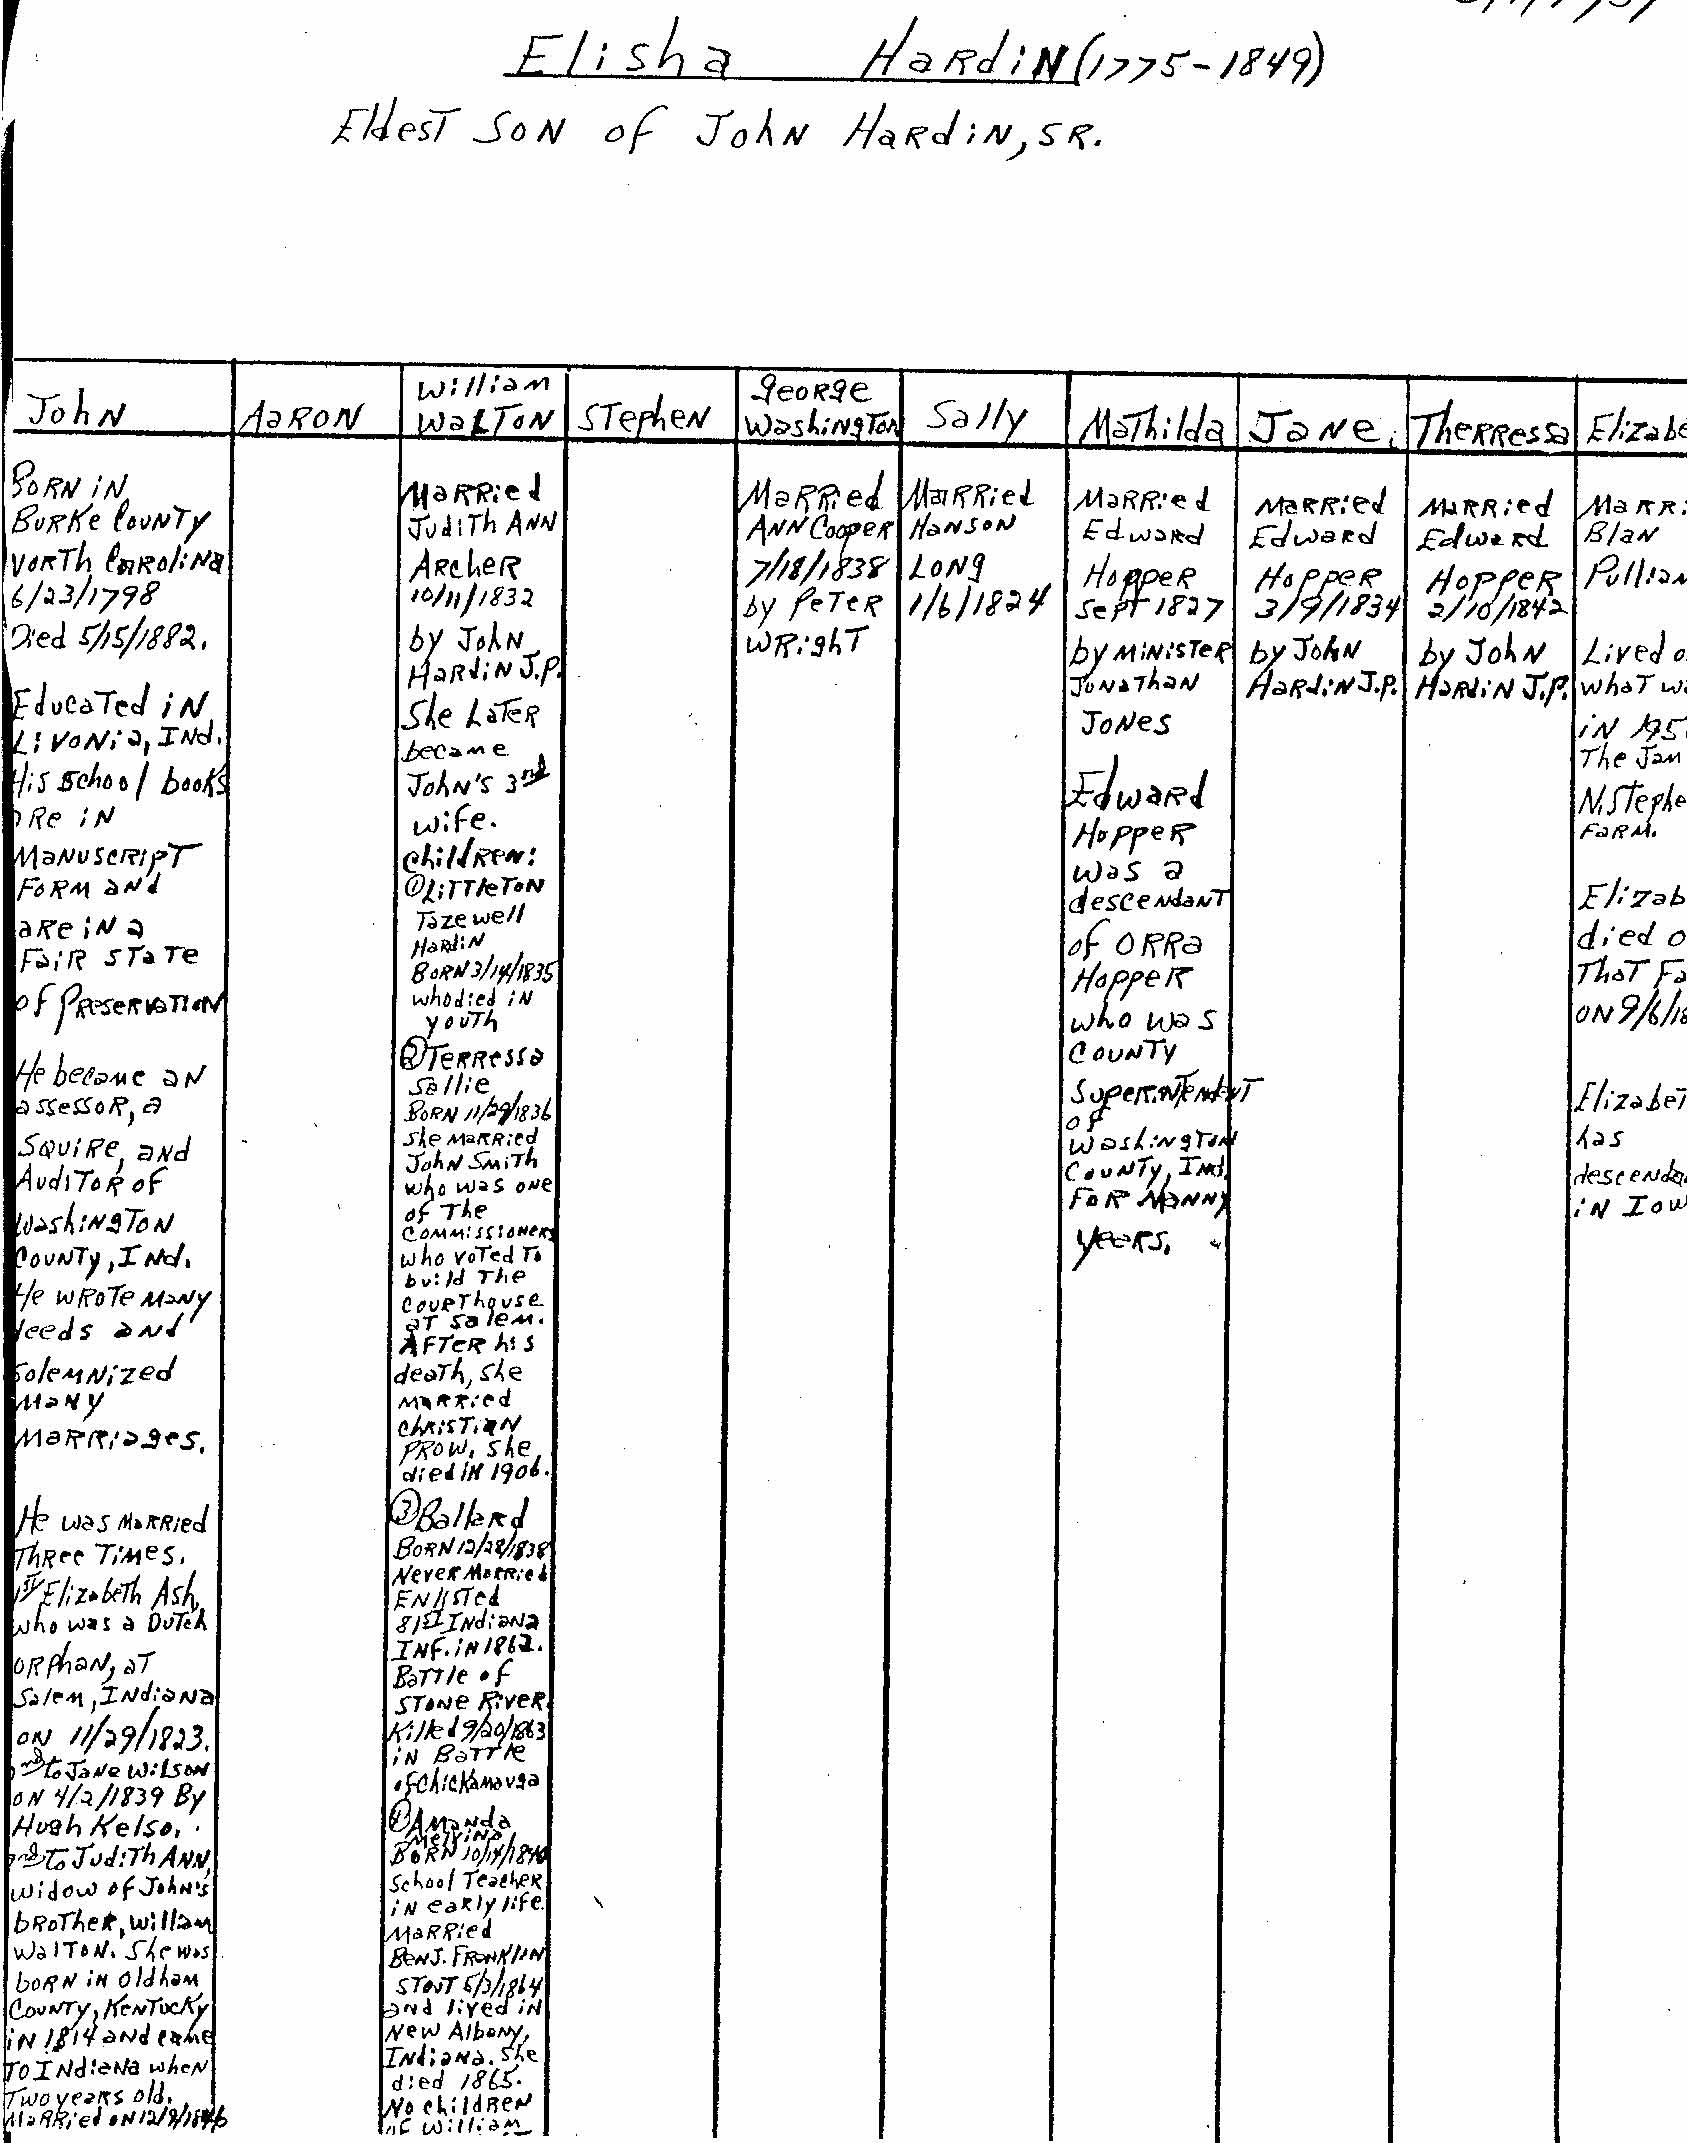 Elisha Hardin (1775-1849)
Eldest Son of John Hardin, Sr.
John
Born in
Burke County
North Carolina
6/23/1798
Died 5/15/1882.
Educated in
Livonia, Ind.
His school books
are in
manuscript
form and
are in a
fair state
of preservation
He became an
assessor, a
squire, and
Auditor of
Washington
County, Ind.
He wrote many
deeds and
solemnized
many
marriages.
He was married
three times.
1st Elizabeth Ash,
who was a Dutch
orphan, at
Salem, Indiana
on 11/29/1823.
2nd to Jane Wilson
on 4/2/1839 By
Hugh Kelso.
3rd to Judith Ann,
widow of John's
brother, William
Walton. She was
born in Oldham
County, Kentucky
in 1814 and came
to Indiana when
two years old.
Married on
Aaron
William
Walton
Married
Judith Ann
Archer
10/11/1832
by John
Hardin J.P.
She later
became
John's 3rd
wife.
Children:
① Littleton
Tazewell
Hardin
Born 3/14/1835
who died in
youth
② Terressa
Sallie
Born 11/29/1836
she married
John Smith
who was one
of the
commissioners
who voted to
build the
courthouse
at Salem.
After his
death, she
married
Christian
Prow. She
died in 1906.
③ Ballard
Born 12/28/1838
Never Married
Enlisted
81st Indiana
Inf. in 1862.
Battle of
Stone River.
Killed 9/20/1863
in Battle
of Chickamauga
④ Amanda
Melvina
Born
School Teacher
in early life.
Married
Benj. Franklin
Stout
and lived in
New Albany,
Indiana. She
died 1865.
No children
of William
Stephen
George
Washington
Married
Ann Cooper
7/18/1838
by Peter
Wright
Sally
Married
Hanson
Long
1/6/1824
Mathilda
Married
Edward
Hopper
Sept 1827
by minister
Jonathan
Jones
Edward
Hopper
was a
descendant
of Orra
Hopper
who was
County
Superintendent
of
Washington
County, Ind.
for manny
years.
Jane
Married
Edward
Hopper
3/9/1834
by John
Hardin J.P.
Therressa
Married
Edward
Hopper
2/10/1842
by John
Hardin J.P.
Elizabe
Marri
Blan
Pulliam
Lived o
what wa
in 195
The Jam
N. Stephe
farm.
Elizab
died o
that fa
on 9/6/18
Elizabet
has
descenda
in Iow